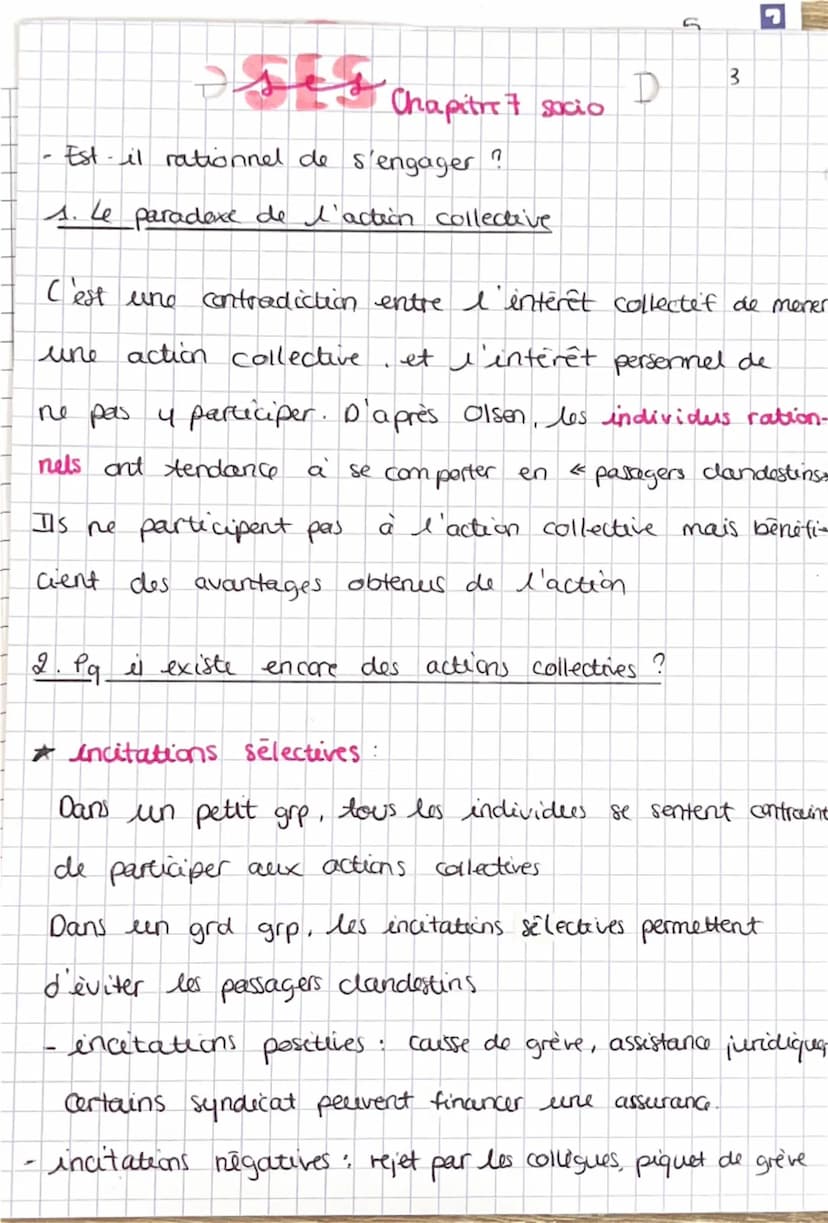 SES
ses Chapitre 7 socio
3
- Est-il rationnel de s'engager ?
1. Le paradoxe de l'action collective
C'est une contradiction entre l'intérêt collectif de mener
une action collective, et l'intérêt personnel de
ne pas y participer. D'après Olsen, les individus ration-
nels ont tendance à se comporter en « passagers clandestins »
Ils ne participent pas à l'action collective mais bénéfi-
cient des avantages obtenus de l'action
2. Pq il existe encore des actions collectives ?
★ incitations sélectives :
Dans un petit grp, tous les individus se sentent contraint
de participer aux actions collectives
Dans un grd grp, les incitations sélectives permettent
d'éviter les passagers clandestins
- incitations positives : caisse de grève, assistance juridique,
Certains syndicat peuvent financer une assurance.
- incitations négatives : rejet par les collègues, piquet de grève